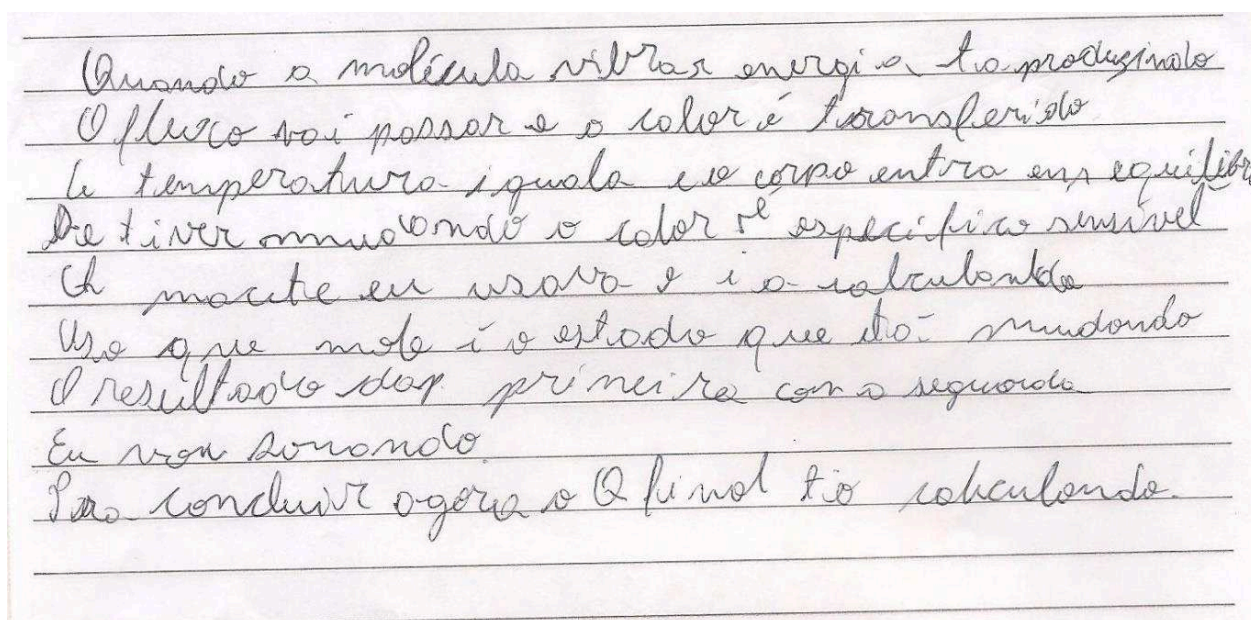 Quando a molécula vibrar energia ta produzindo
O fluxo vai passar e o calor é transferido
A temperatura iguala e o corpo entra em equilíbri
Se tiver mudando o calor é específico sensível
A macete eu usava e i a calculando
Uso que mole é o estado que tá mudando
O resultado da primeira com a segunda
Eu vou somando
Pra concluir agora o Q final tô calculando.